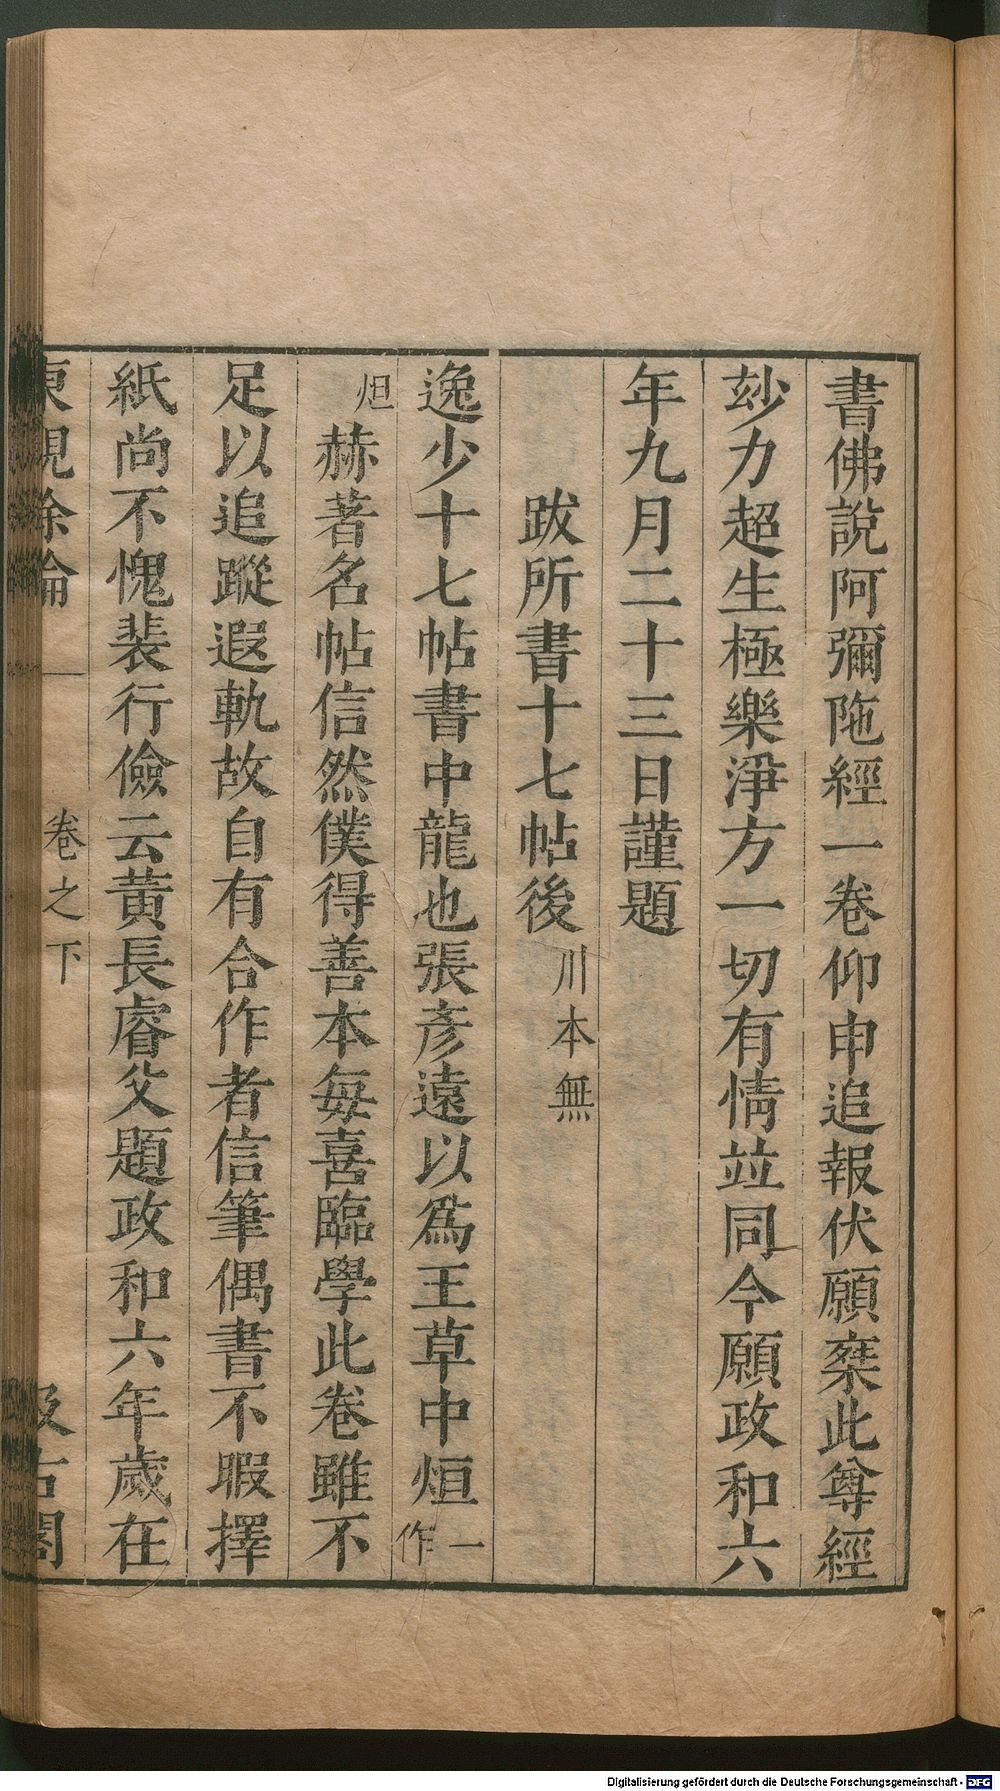 書佛說阿彌陁經一卷仰申追報伏願棻此尊經
玅力超生極樂淨方一切有情竝同今願政和六
年九月二十三日謹題
跋所書十七帖後川本無
逸少十七帖書中龍也張彥遠以爲王草中烜一作
烜赫著名帖信然僕得善本每喜臨學此卷雖不
足以追蹤遐軌故自有合作者信筆偶書不暇擇
紙尚不愧裴行儉云黃長睿父題政和六年歲在
東觀餘論 卷之下 汲古閣
Digitalisierung gefördert durch die Deutsche Forschungsgemeinschaft - DFG